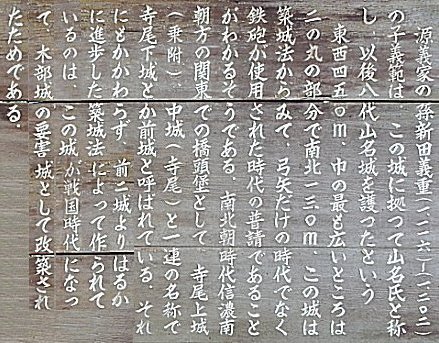 源義家の孫新田義重(一一一六)ー(一二〇二)
の子義範は この城に拠つて山名氏と称
し、以後八代山名城を護ったという
東西四五〇m、巾の最も広いところは
二の丸の部分で南北一三〇m、この城は
築城法からみて、弓矢だけの時代でなく
鉄砲が使用された時代の普請であること
がわかるそうである。 南北朝時代信濃南
朝方の関東での橋頭堡として 寺尾上城
(乗附)、中城(寺尾)と一連の名称で
寺尾下城とか前城と呼ばれている。それ
にもかかわらず、前二城よりはるか
に進歩した築城法によって作られて
いるのは、この城が戦国時代になっ
て、木部城の要害城として改築され
たためである。